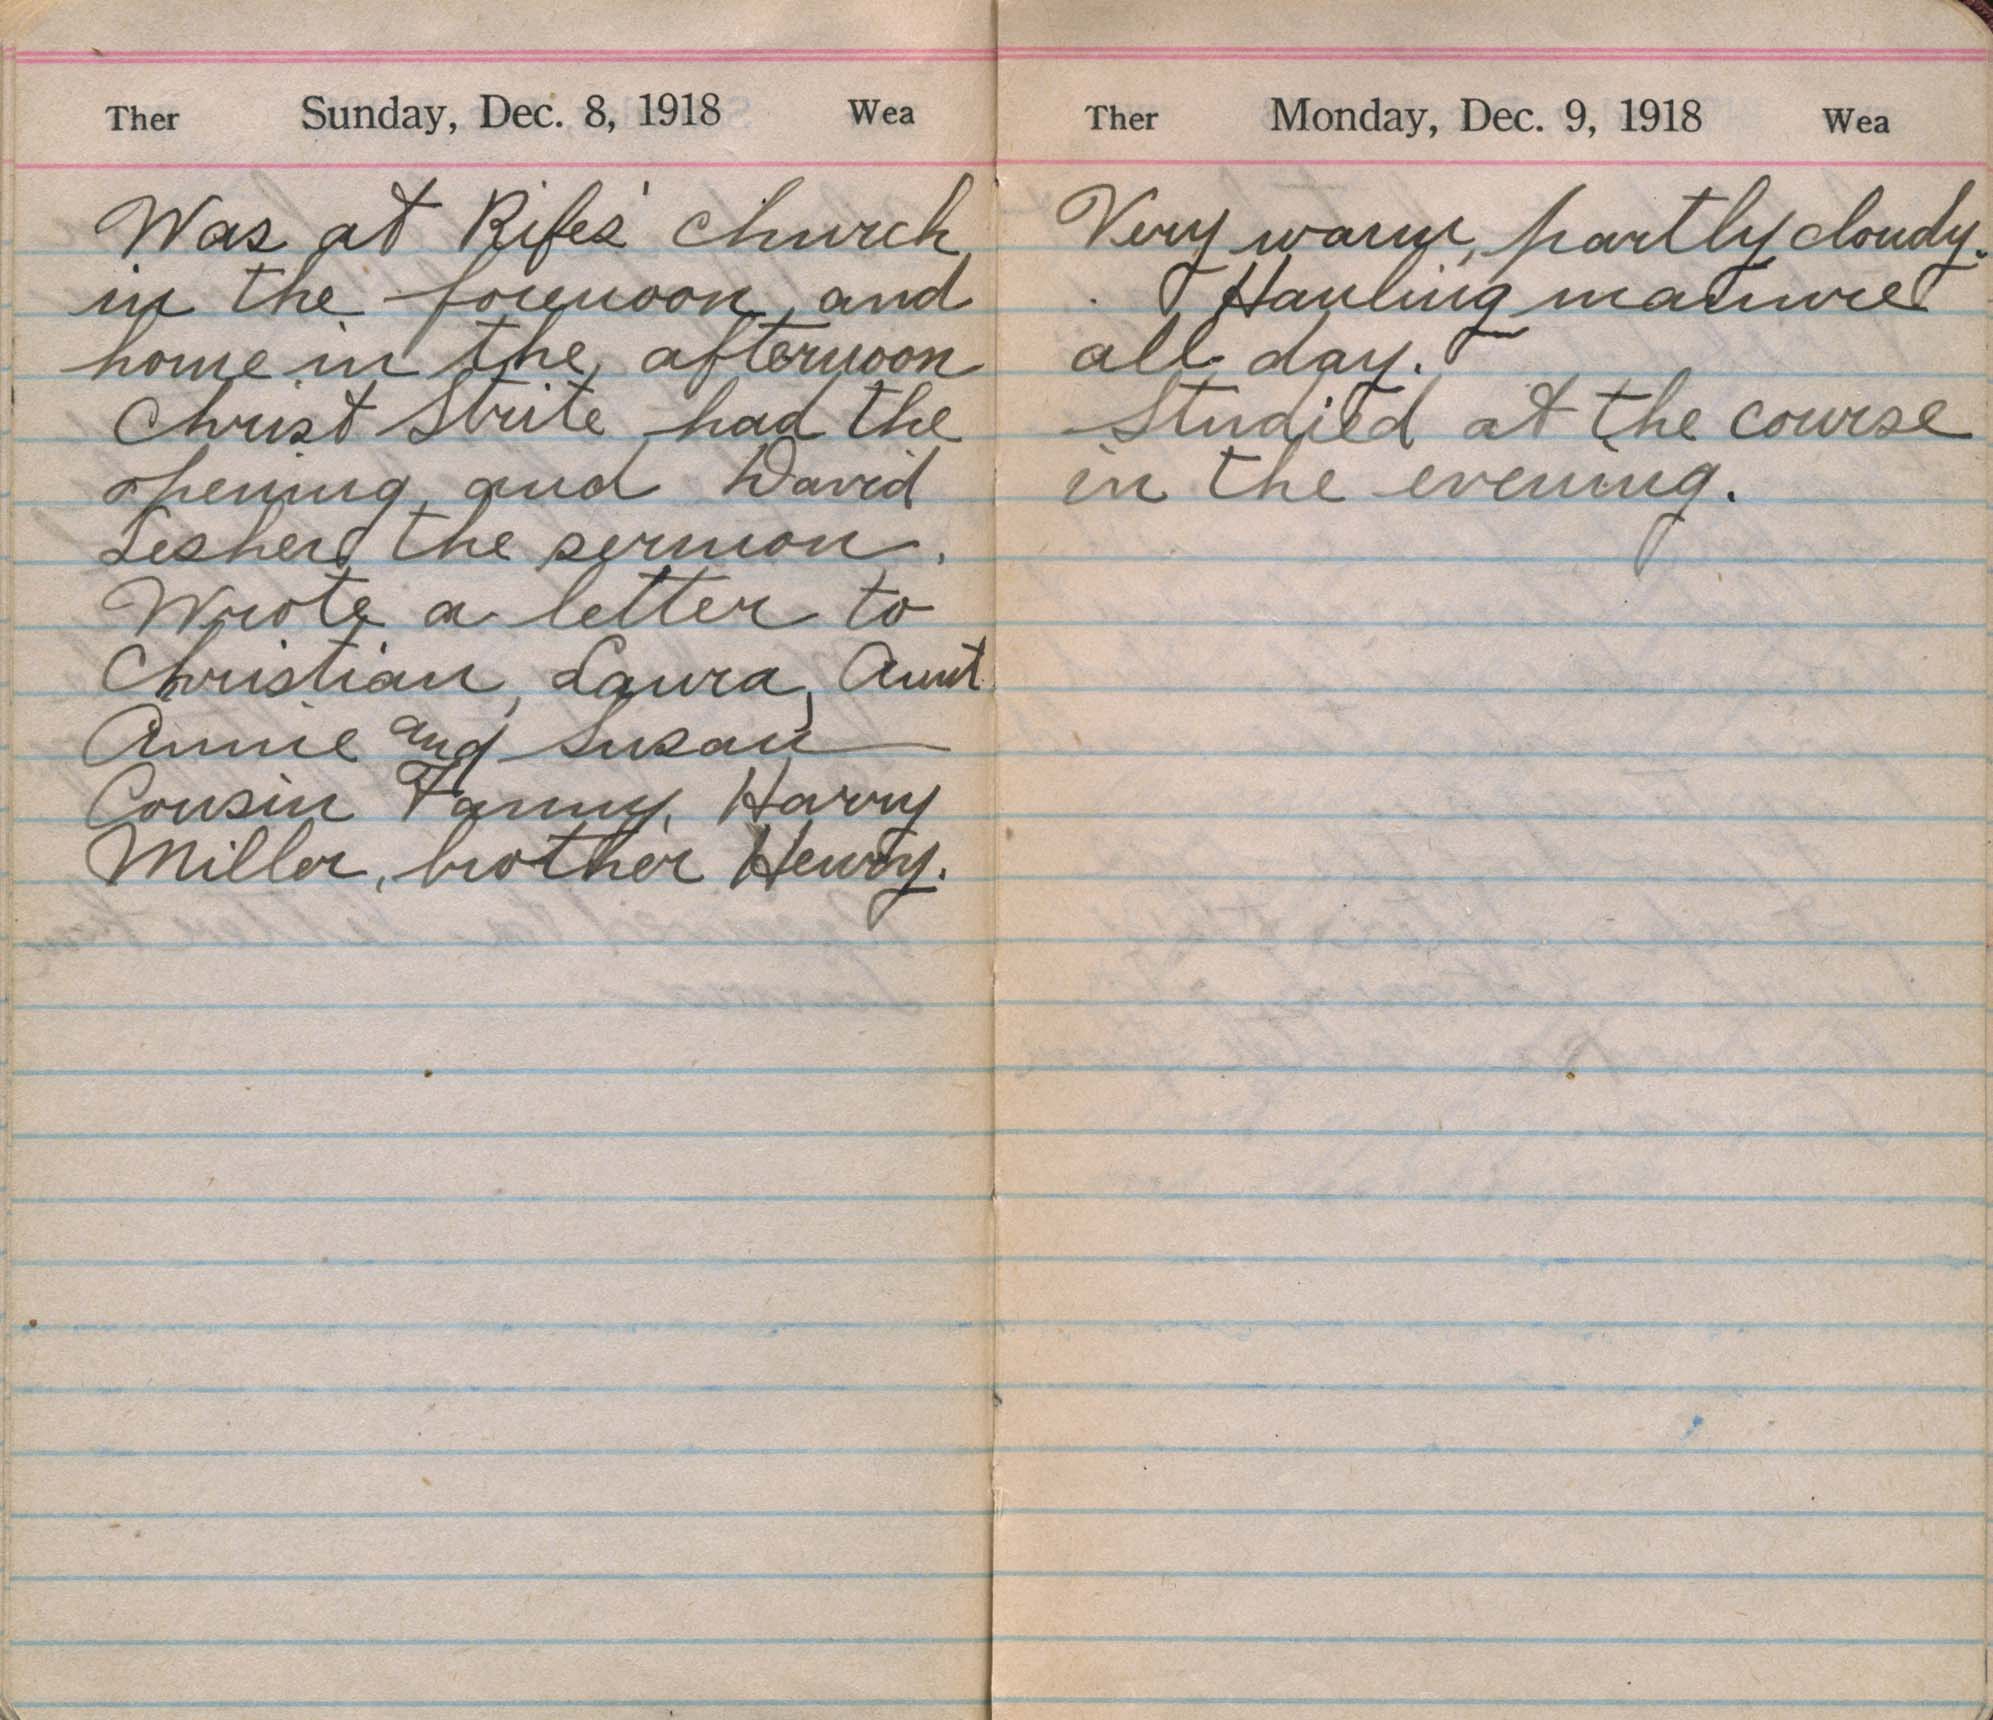 Ther Sunday, Dec. 8, 1918 Wea
Was at Rifes' church
in the forenoon and
home in the afternoon
Christ Strite had the
opening and David
Lesher the sermon.
Wrote a letter to
Christian, Laura, Aunt
Annie and Susan
Cousin Fanny, Harry
Miller, brother Henry.
Ther Monday, Dec. 9, 1918 Wea
Very warm, partly cloudy.
Hauling manure
all day.
Studied at the course
in the evening.